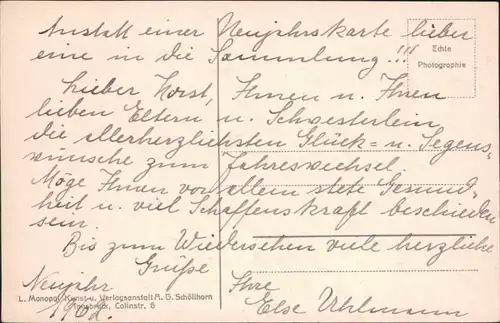 Anstatt einer Neujahrskarte lieber
eine in die Sammlung!!!
Echte
Photographie
Lieber Horst, Ihnen u. Ihren
lieben Eltern u. Schwesterlein
die allerherzlichsten Glück= u. Segens-
wünsche zum Jahreswechsel.
Möge Ihnen vor allem stets Gesund-
heit u. viel Schaffenskraft beschieden
sein.
Bis zum Wiedersehen viele herzliche
Grüße
Ihre
Else Uhlmann
Neujahr
L. Monopol Kunst-u. Verlagsanstalt A. G. Schöllhorn
Innsbruck, Colinstr. 6